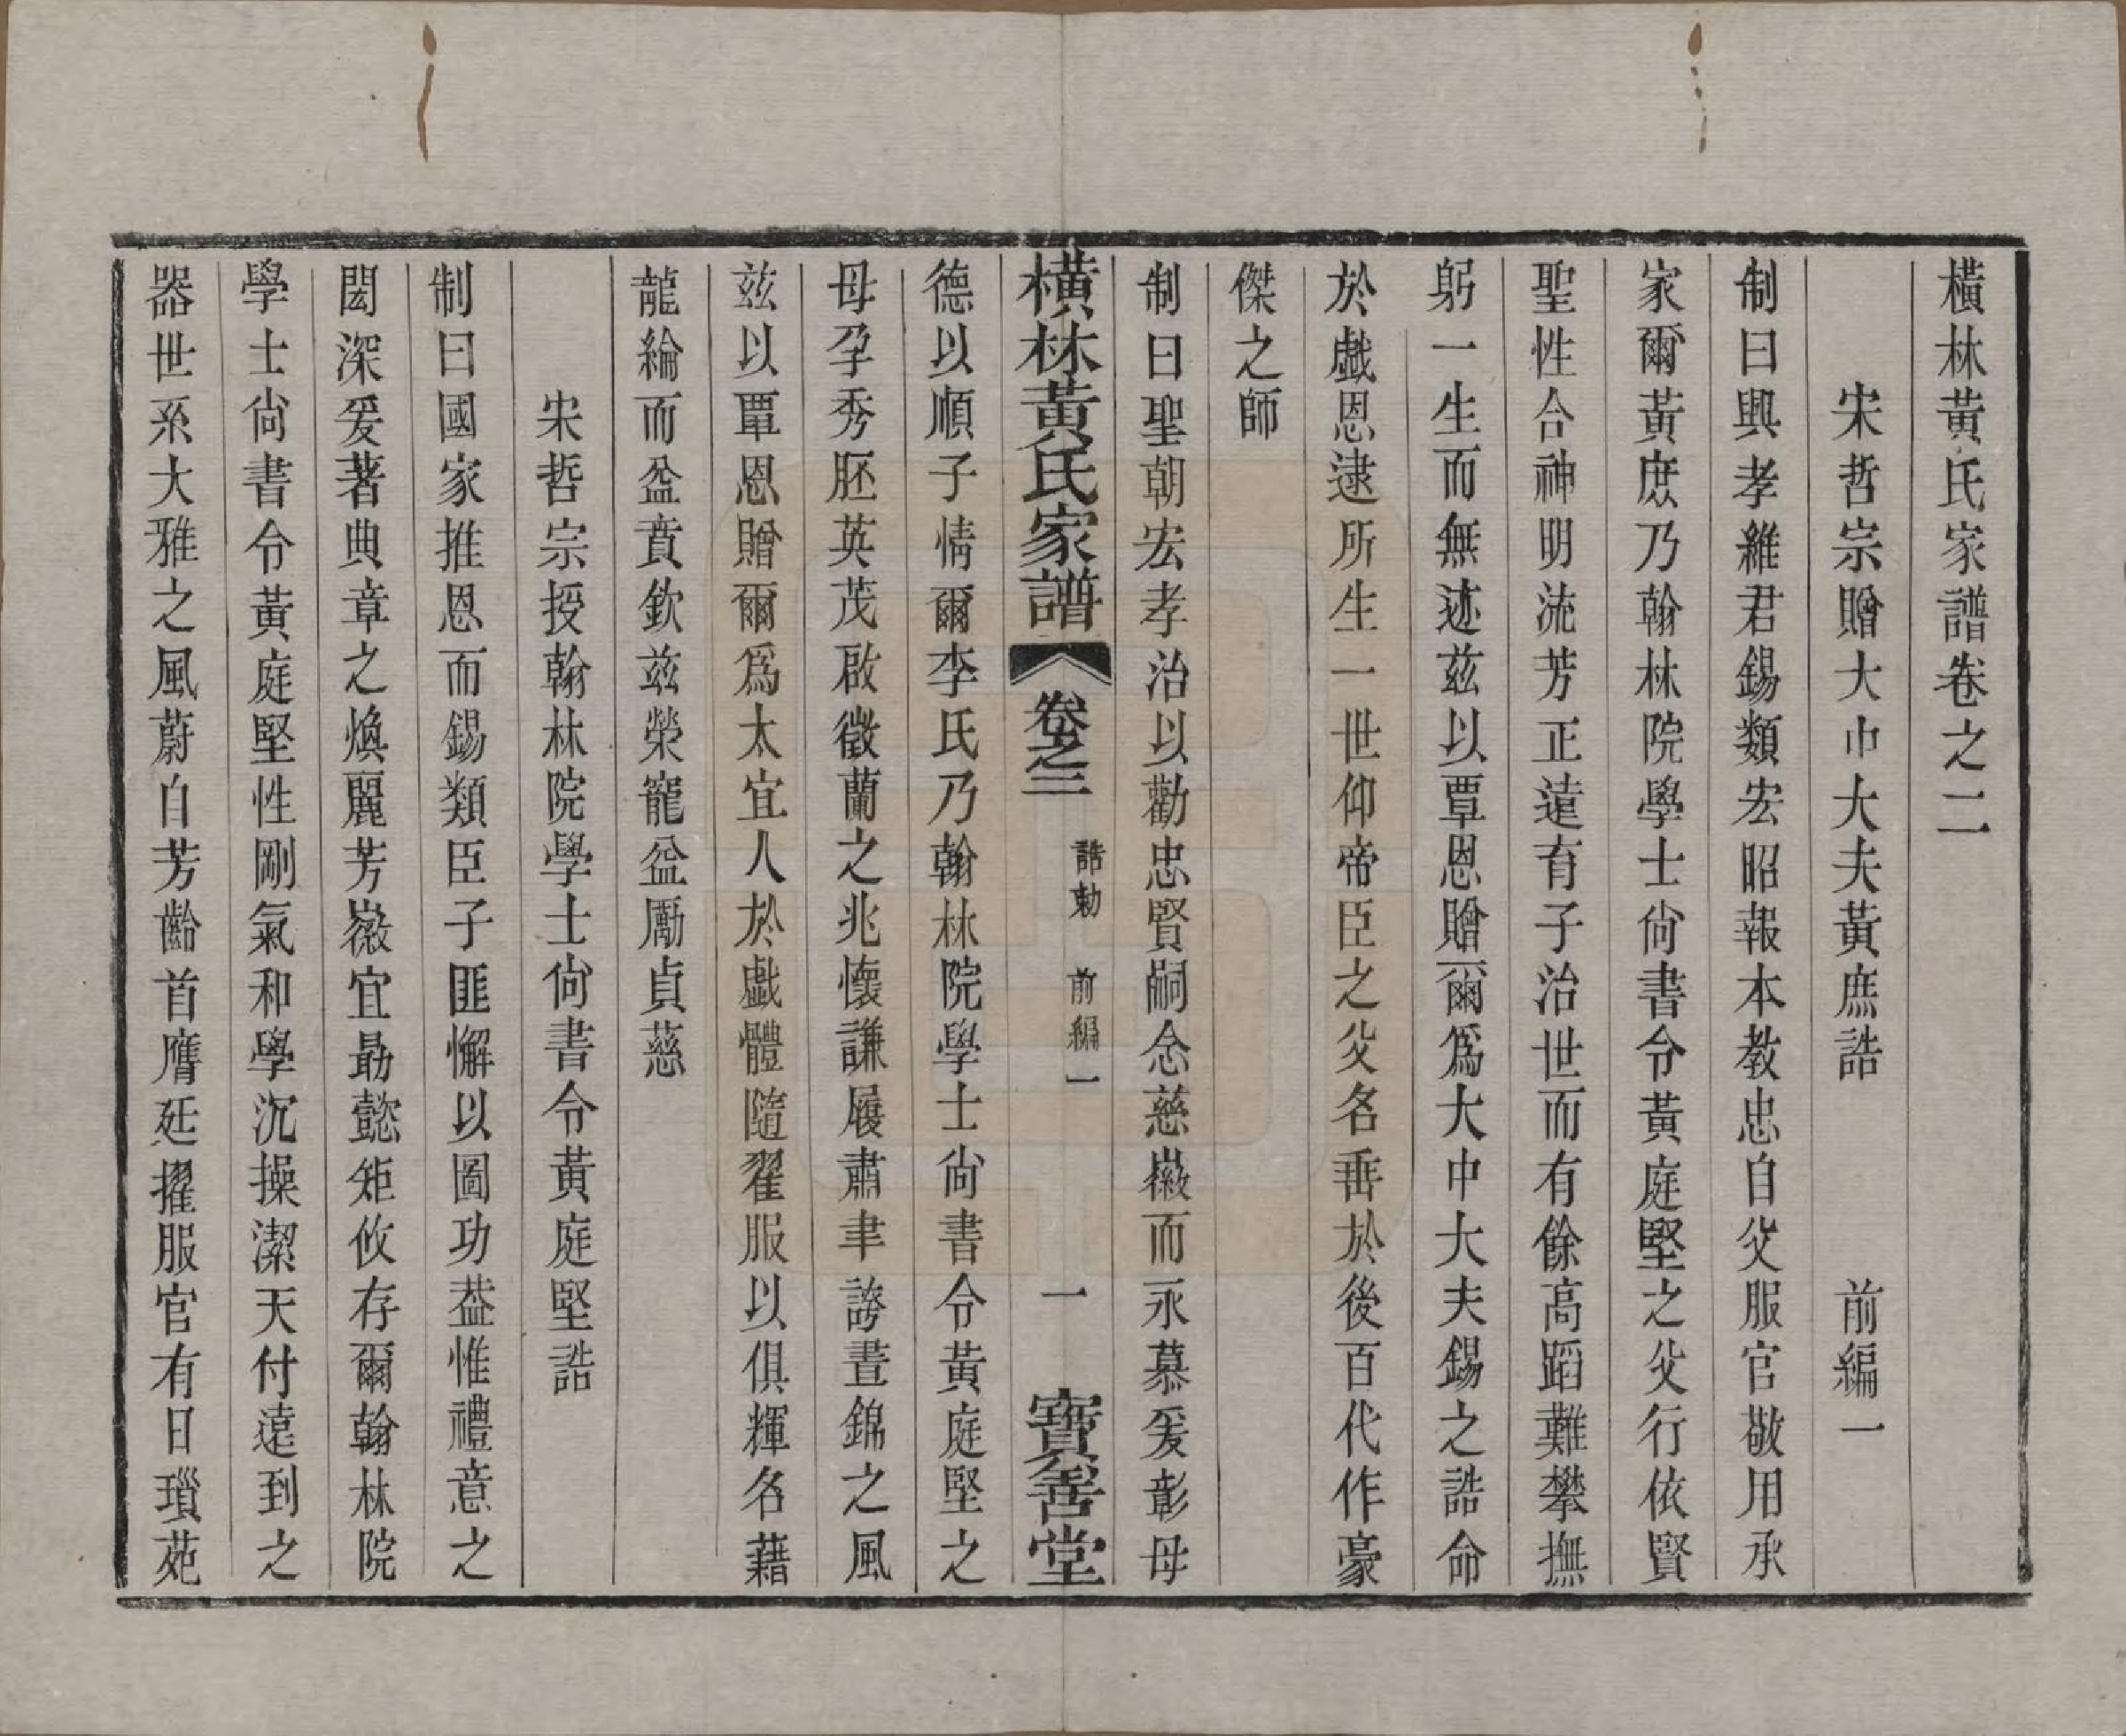 橫林黃氏家譜卷之二
宋哲宗贈大中大夫黃庶誥　前編一
制曰興孝維君錫類宏昭報本教忠自父服官敬用承
家爾黃庶乃翰林院學士尙書令黃庭堅之父行依賢
聖性合神明流芳正遠有子治世而有餘高蹈難攀撫
躬一生而無述茲以覃恩贈爾爲大中大夫錫之誥命
於戲恩逮所生一世仰帝臣之父名垂於後百代作豪
傑之師
制曰聖朝宏孝治以勸忠賢嗣念慈徽而永慕爰彰母
橫林黃氏家譜　卷之二　誥勅　前編一　一　寶善堂
德以順子情爾李氏乃翰林院學士尙書令黃庭堅之
母孕秀胚英茂啟徵蘭之兆懷謙履肅聿誇晝錦之風
茲以覃恩贈爾爲太宜人於戲體隨翟服以俱輝名藉
龍綸而益賁欽茲榮寵益勵貞慈
宋哲宗授翰林院學士尙書令黃庭堅誥
制曰國家推恩而錫類臣子匪懈以圖功葢惟禮意之
閎深爰著典章之煥麗芳徽宜勗懿矩攸存爾翰林院
學士尙書令黃庭堅性剛氣和學沉操潔天付遠到之
器世系大雅之風蔚自芳齡首膺廷擢服官有日瑣苑